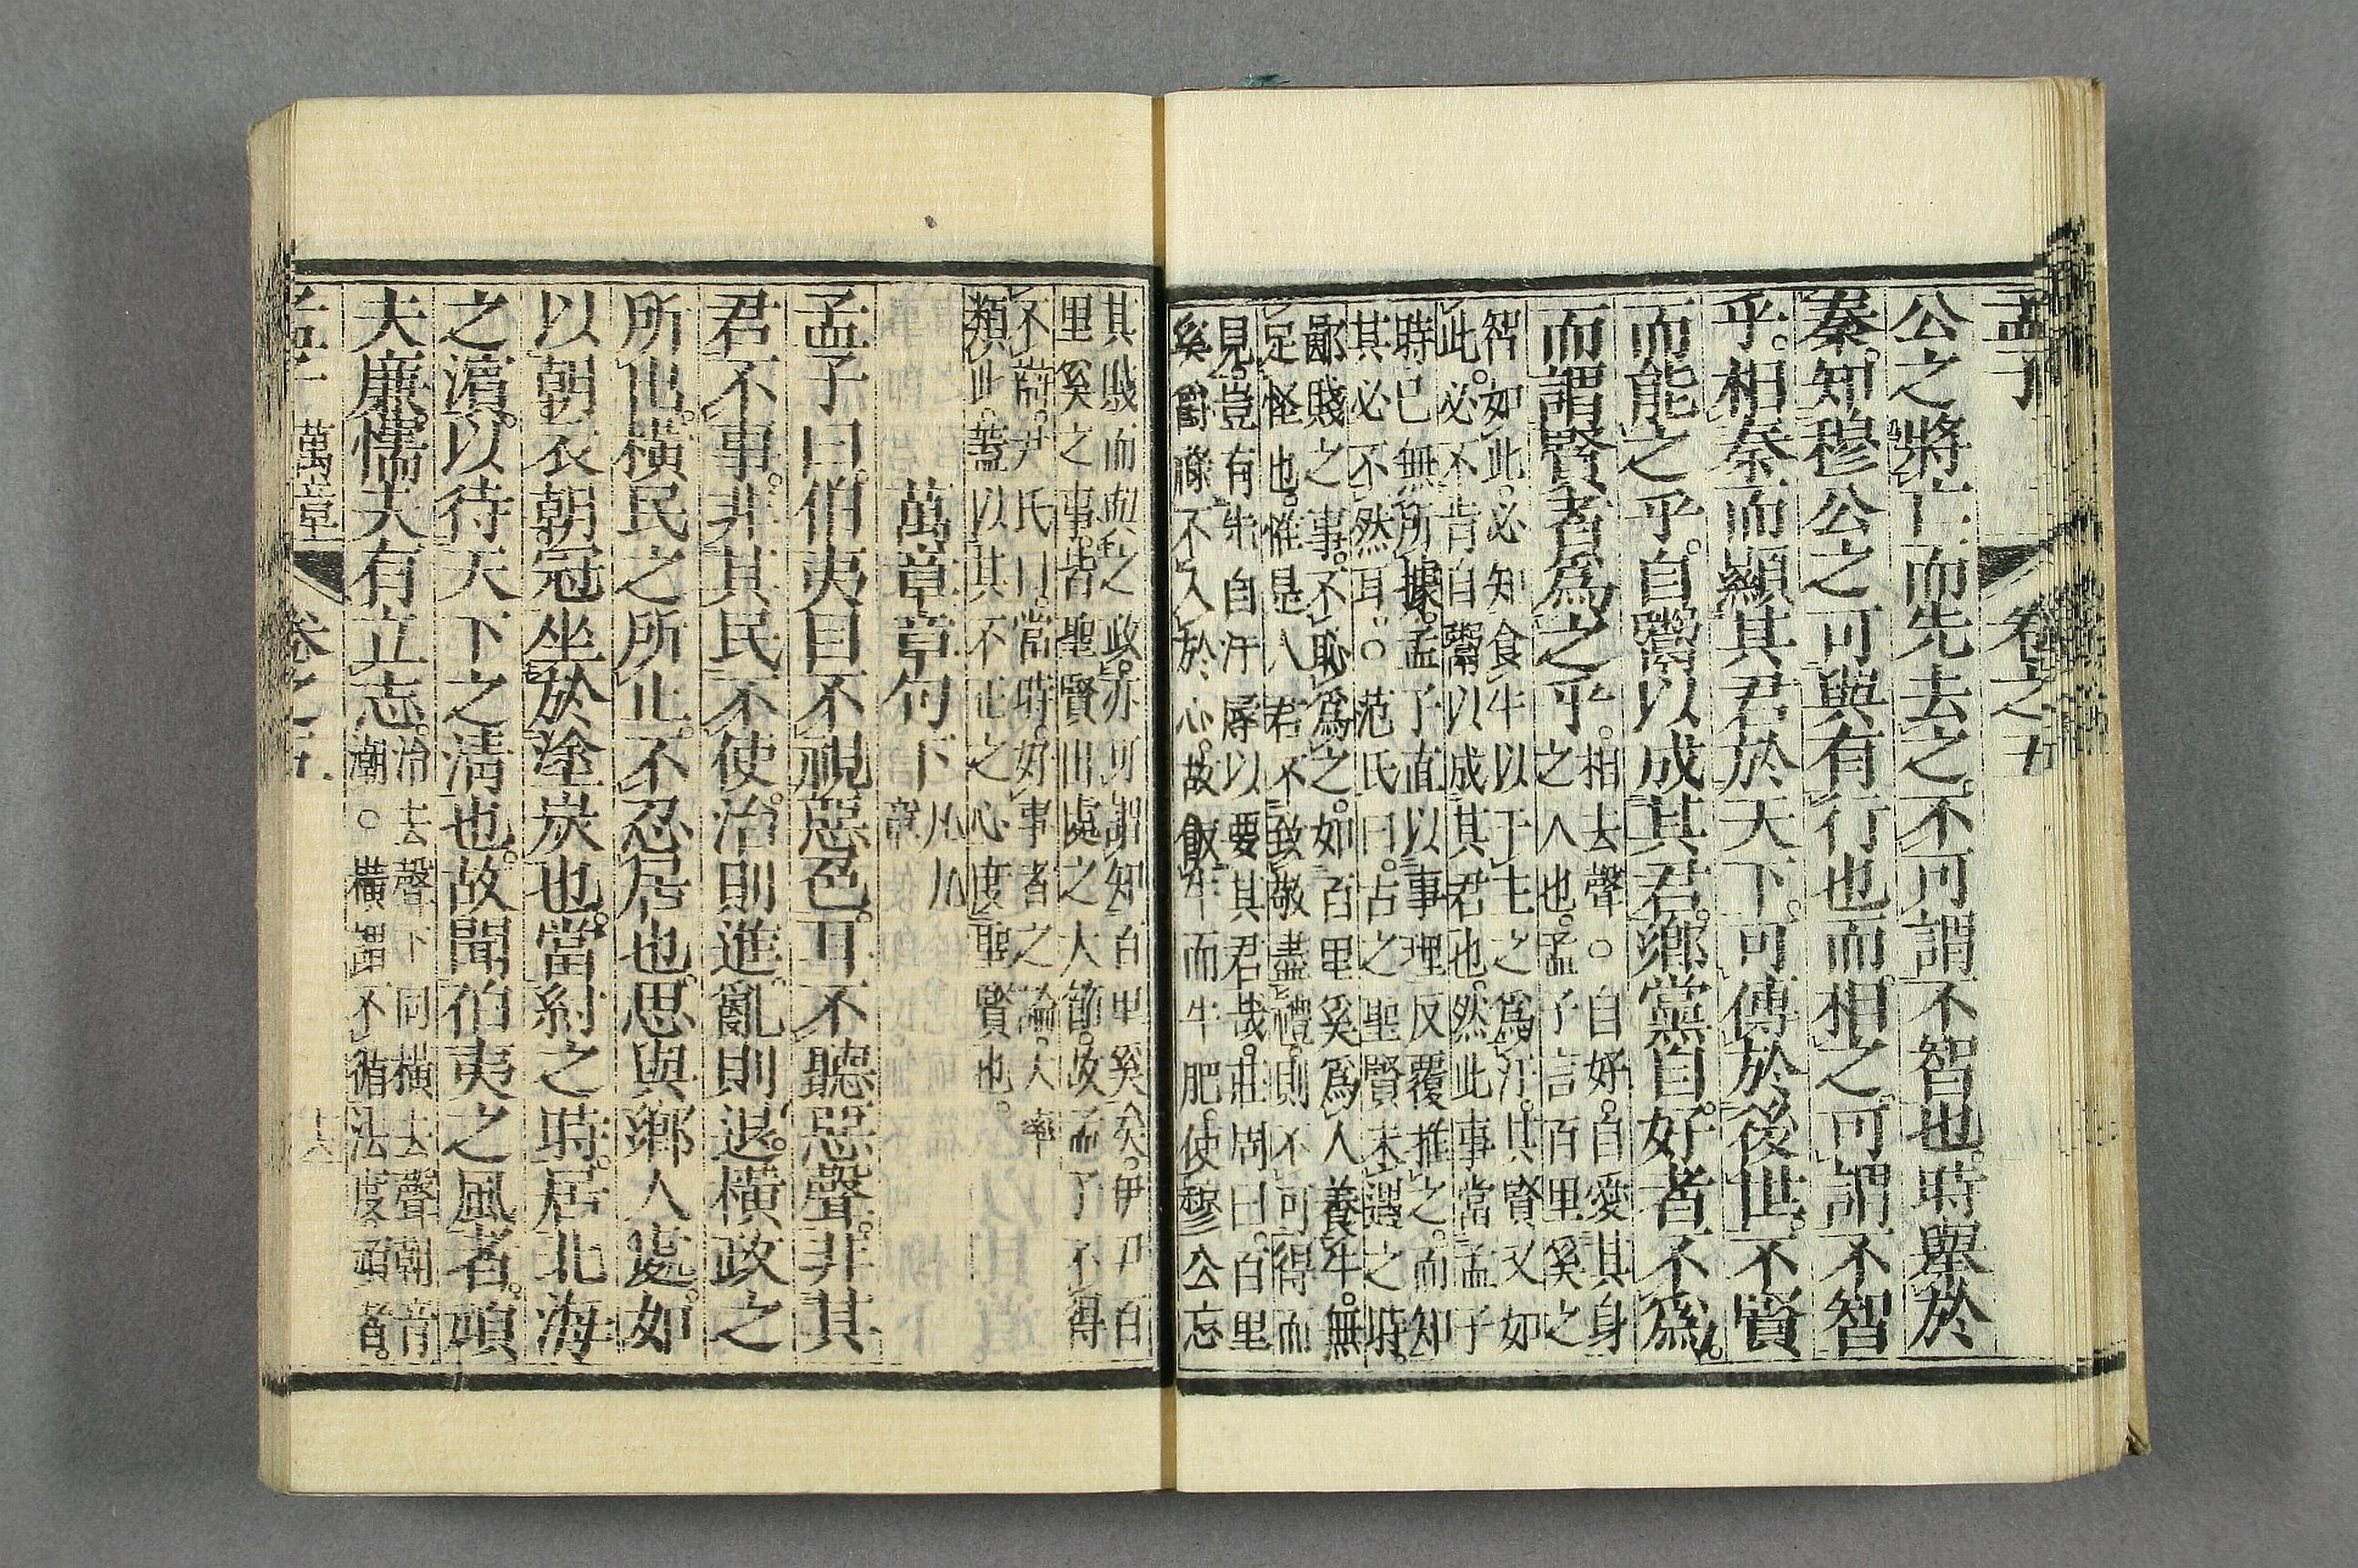 孟子 卷之五
公之將亡而先去之。不可謂不智也。時舉於
秦。知穆公之可與有行也而相之。可謂不智
乎。相秦而顯其君於天下。可傳於後世。不賢
而能之乎。自鬻以成其君。鄉黨自好者不爲。
而謂賢者爲之乎。相去聲○自好。自愛其身
之人也。孟子言百里奚之
智如此。必知食牛以干主之爲汙。其賢又如
此。必不肯自鬻以成其君也。然此事當孟子
時已無所據。孟子直以事理反覆推之。而知
其必不然耳○范氏曰。古之聖賢未遇之時。
鄙賤之事。不恥爲之。如百里奚爲人養牛。無
足怪也。惟是人君不致敬盡禮。則不可得而
見。豈有先自汙辱以要其君哉。莊周曰。百里
奚爵祿不入於心。故飯牛而牛肥。使穆公忘
其賤而與之政。亦可謂知百里奚矣。伊尹百
里奚之事。皆聖賢出處之大節。故孟子不得
不辯。尹氏曰。當時好事者之論。大率
類此。蓋以其不正之心度聖賢也。
萬章章句下 凡九
章
孟子曰。伯夷目不視惡色。耳不聽惡聲。非其
君不事。非其民不使。治則進。亂則退。橫政之
所出。橫民之所止。不忍居也。思與鄉人處。如
以朝衣朝冠坐於塗炭也。當紂之時。居北海
之濱。以待天下之淸也。故聞伯夷之風者。頑
夫廉。懦夫有立志。治去聲下同橫去聲朝音
潮○橫謂不循法度。頑者。
孟子 萬章 卷之五